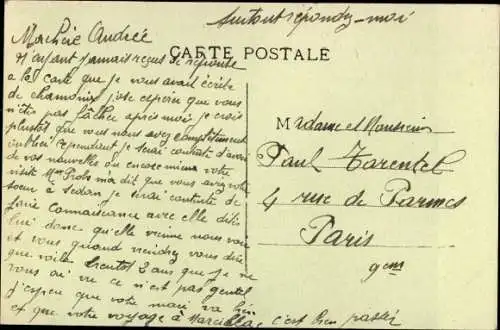 Surtout répondez-moi
CARTE POSTALE
Ma chère Andrée
N'ayant jamais reçus de réponse
a la carte que je vous avait écrite
de chamonix j'ose espérer que vous
n'êtes pas fâchée après moi, je crois
plustôt que vous nous avez complètement
oublié cependant je serai contente d'avoir
de vos nouvelle ou encore mieux votre
visite Mme m'a dit que vous aviez votre
soeur a Sedan je serai contente de
faire connaissance avec elle dites
lui donc qu'elle vienne nous voir
et vous quand viendrez vous dire
que voilà bientot 2 ans que je ne
vous ai vu ce n'est pas gentil
j'espère que votre mari va bien
et que votre voyage à c'est bien passée
Madame et Monsieur
Paul Tarentel
4 rue de Parmes
Paris
9em